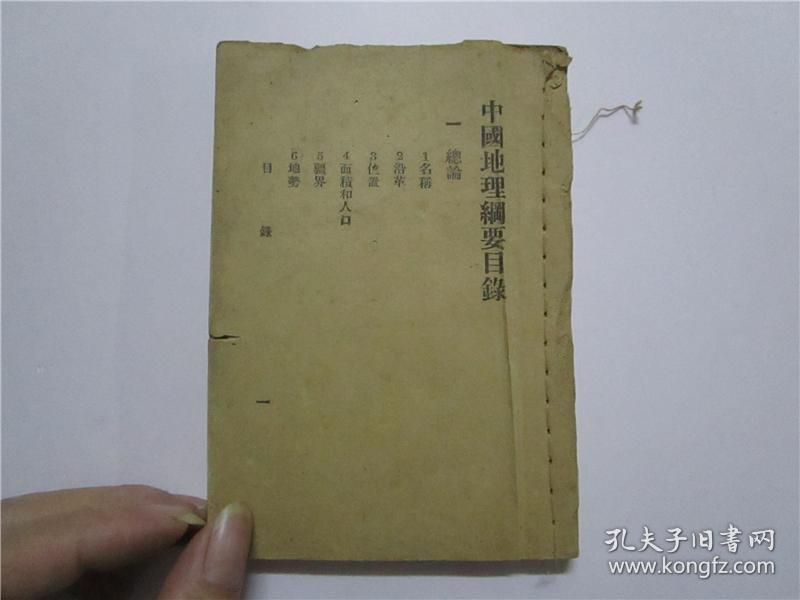 中國地理綱要目錄
一 總論
1名稱
2沿革
3位置
4面積和人口
5疆界
6地勢
目 錄 一
孔夫子旧书网
www.kongfz.com